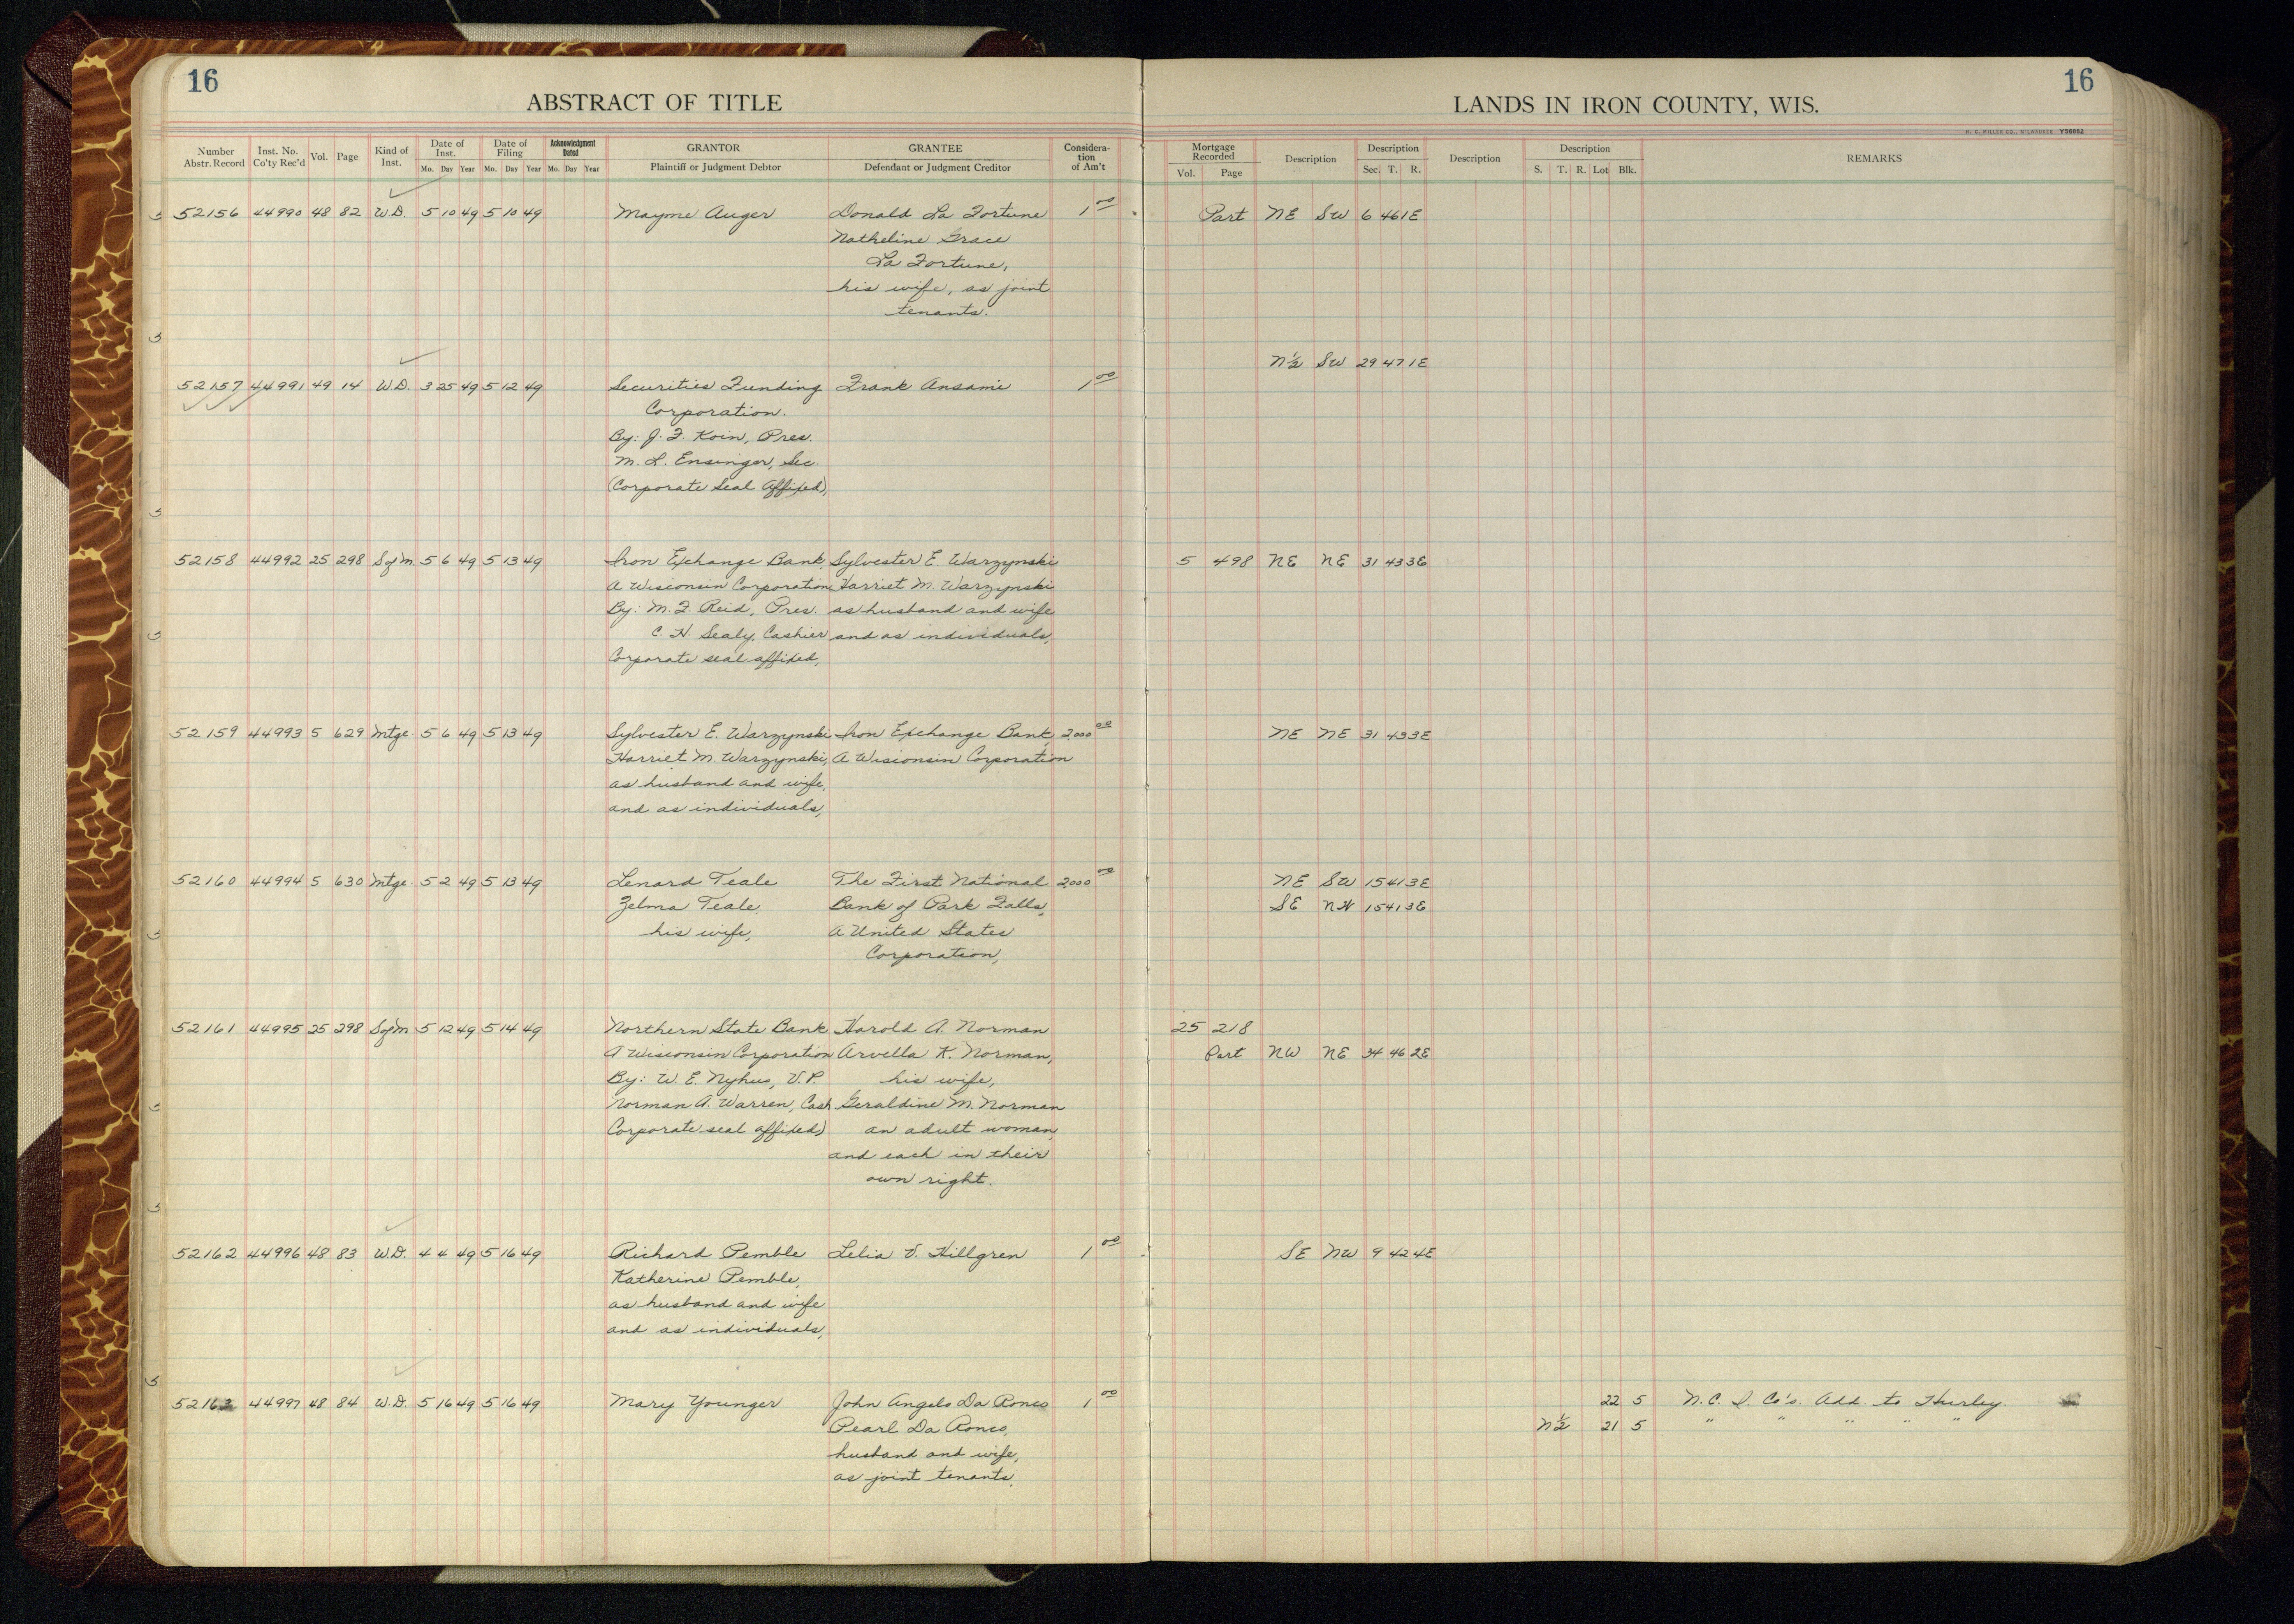 16
ABSTRACT OF TITLE
LANDS IN IRON COUNTY, WIS.
16
H. C. MILLER CO., MILWAUKEE Y56082
Number Abstr. Record Inst. No. Co'ty Rec'd Vol. Page Kind of Inst. Date of Inst. Mo. Day Year Date of Filing Mo. Day Year Acknowledgment Dated Mo. Day Year GRANTOR Plaintiff or Judgment Debtor GRANTEE Defendant or Judgment Creditor Consideration of Am't Mortgage Recorded Vol. Page Description Description Sec. T. R. Description Description S. T. R. Lot Blk. REMARKS
52156 44990 48 82 W.D. 5 10 49 5 10 49 Mayme Auger Donald La Fortune 1 00 Part NE SW 6 46 1E
Natheline Grace
La Fortune,
his wife, as joint
tenants.
N½ SW 29 47 1E
52157 44991 49 14 W.D. 3 25 49 5 12 49 Securities Funding Frank Ansami 1 00
Corporation.
By: J. F. Koin, Pres.
M. L. Ensinger, Sec.
(Corporate Seal Affixed),
52158 44992 25 298 S of M. 5 6 49 5 13 49 Iron Exchange Bank, Sylvester E. Warzynski 5 498 NE NE 31 43 3E
A Wisconsin Corporation Harriet M. Warzynski
By: M. F. Reid, Pres. as husband and wife
C. H. Sealy, Cashier and as individuals,
Corporate seal affixed,
52159 44993 5 629 Mtge. 5 6 49 5 13 49 Sylvester E. Warzynski Iron Exchange Bank, 2,000 00 NE NE 31 43 3E
Harriet M. Warzynski, A Wisconsin Corporation
as husband and wife,
and as individuals,
52160 44994 5 630 Mtge. 5 2 49 5 13 49 Lenard Teale The First National 2,000 00 NE SW 15 41 3E
Zelma Teale, Bank of Park Falls, SE NW 15 41 3E
his wife, A United States
Corporation,
52161 44995 25 298 S of M 5 12 49 5 14 49 Northern State Bank Harold A. Norman 25 218
A Wisconsin Corporation Arvella K. Norman, Part NW NE 34 46 2E
By: W. E. Nyhus, V.P. his wife,
Norman A. Warren, Cash Geraldine M. Norman
Corporate seal affixed) an adult woman,
and each in their
own right.
52162 44996 48 83 W.D. 4 4 49 5 16 49 Richard Pemble Lelia V. Hillgren 1 00 SE NW 9 42 4E
Katherine Pemble,
as husband and wife
and as individuals,
52163 44997 48 84 W.D. 5 16 49 5 16 49 Mary Younger John Angelo Da Ronco 1 00 22 5 N. C. I. Co's. Add. to Hurley.
Pearl Da Ronco, N½ 21 5 " " " " "
husband and wife,
as joint tenants,